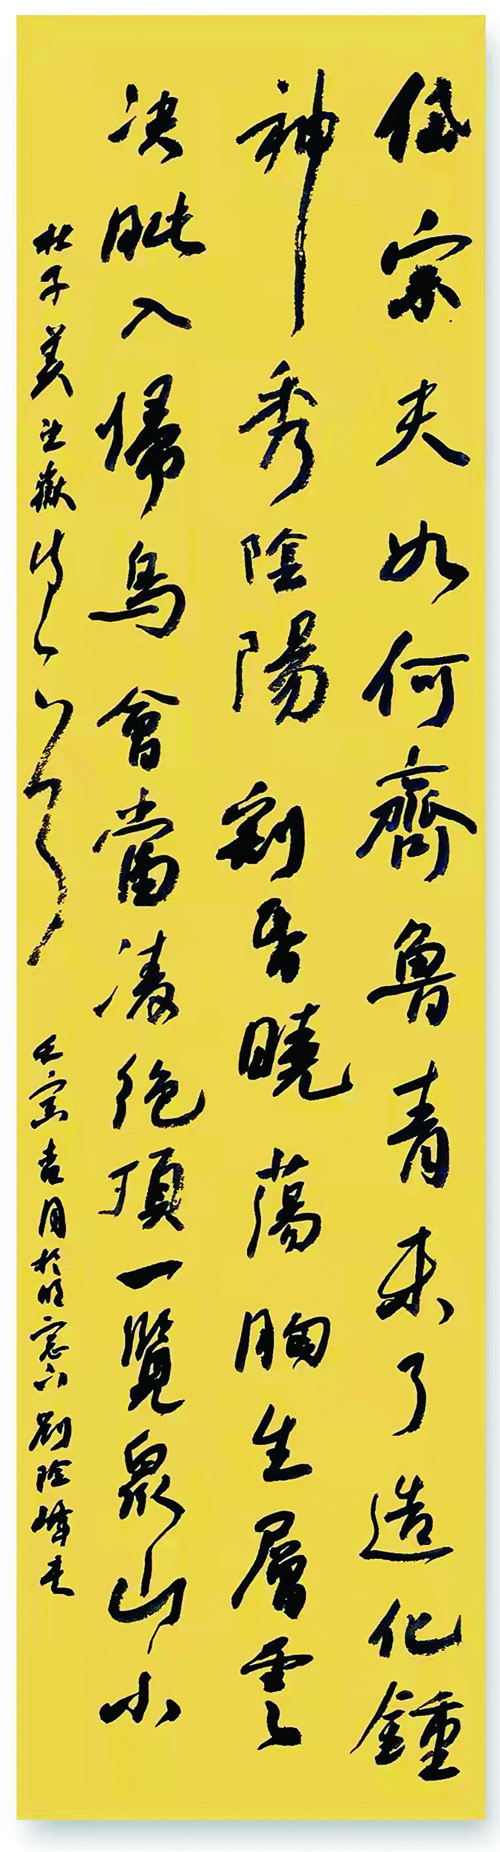 岱宗夫如何齊魯青未了造化鍾
神秀陰陽割昏曉蕩胸生層雲
决眦入歸鳥會當凌絕頂一覽衆山小
杜子美望嶽詩一首 壬寅吉月於明窗下劉陰峰書